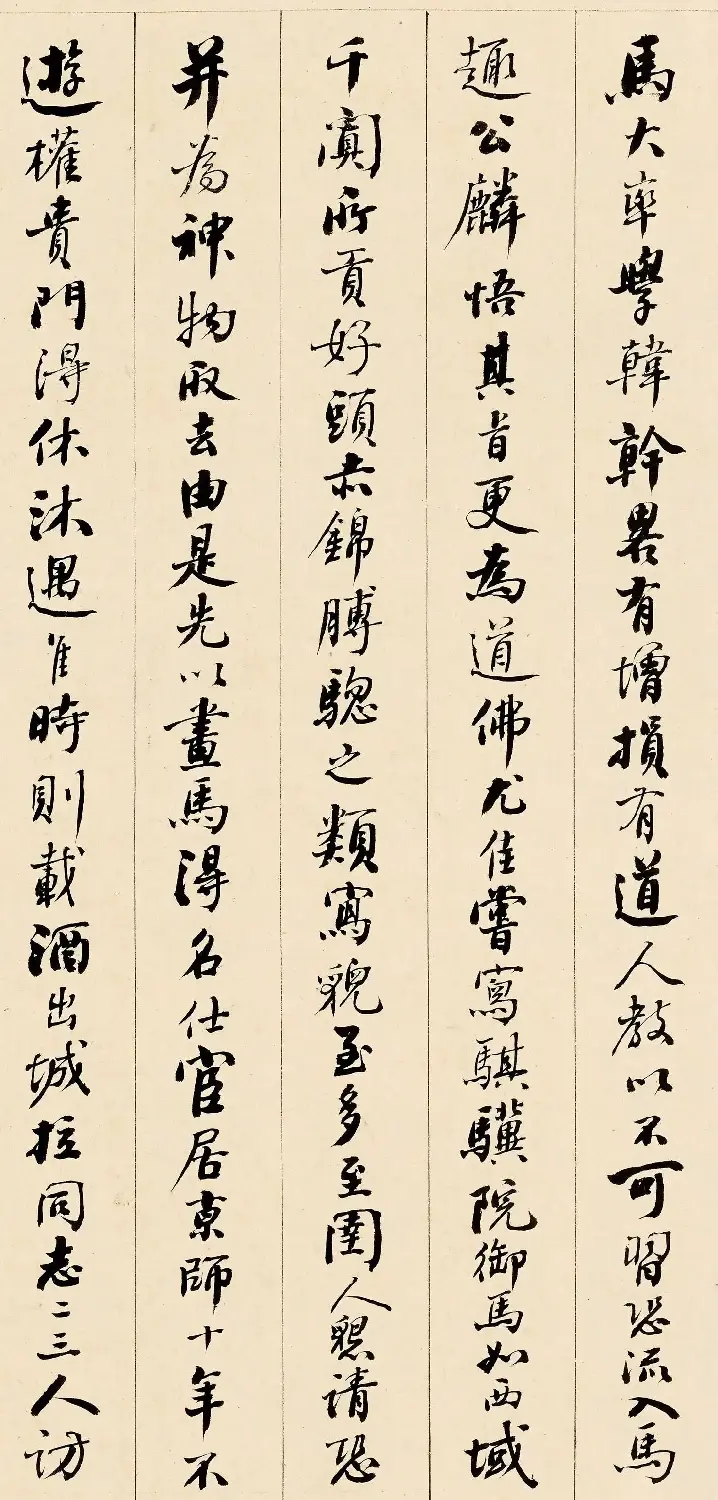 馬大率學韓幹畧有增損有道人教以不可習恐流入馬
趣公麟悟其旨更為道佛尤佳嘗寫騏驥院御馬如西域
于闐所貢好頭赤錦膊驄之類寫貌至多至圉人懇請恐
并為神物取去由是先以畫馬得名仕宦居京師十年不
遊權貴門得休沐遇佳時則載酒出城拉同志二三人訪